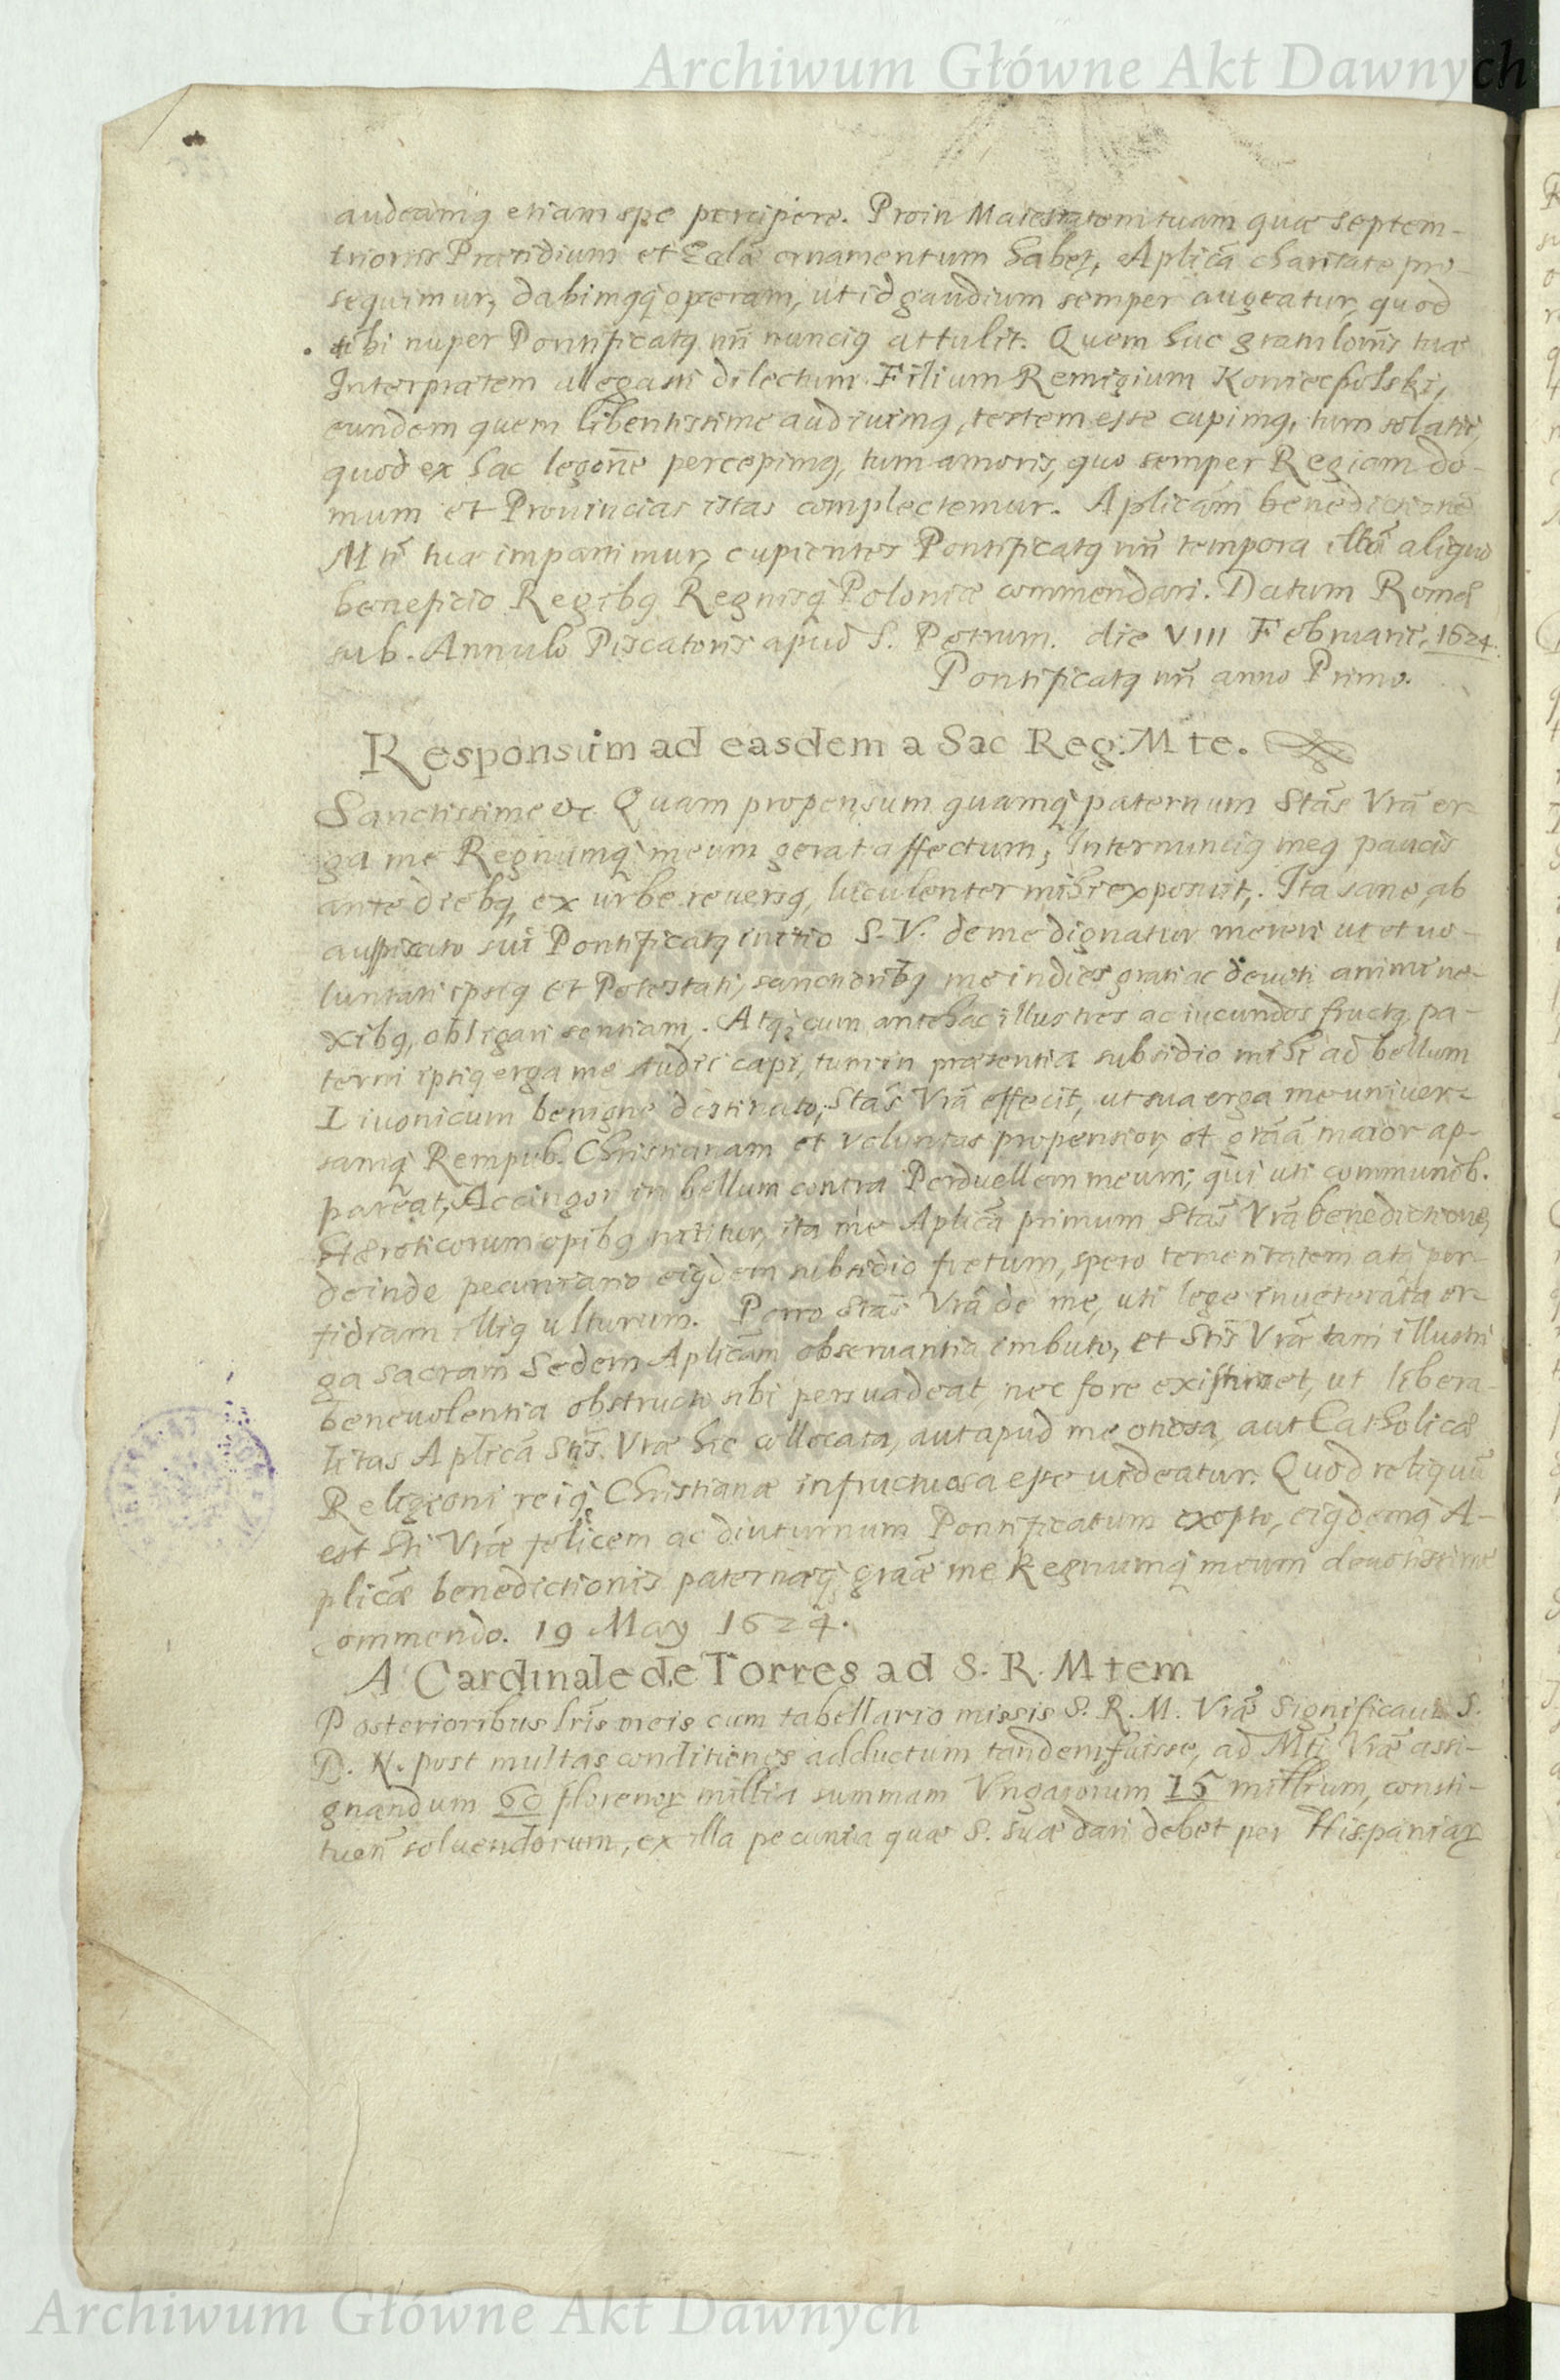 Archiwum Główne Akt Dawnych
audeamꝰ etiam spe percipere. Proin Maiestatem tuam quæ septem-
trionis Præsidium et Eccłæ ornamentum habet, Aplicâ charitate pro-
sequimur, dabimꝰq̨ operam, ut id gaudium semper augeatur, quod
tibi nuper Pontificatꝰ nri̅ nunciꝰ attulit. Quem huc gratulonis̅ tuæ
Interpretem allegasti dilectum Filium Remigium Koniecpolski,
eundem quem libentissime audiuimꝰ, testem esse cupimꝰ, tum solatii,
quod ex hac legone̅ percepimꝰ, tum amoris, quo semper Regiam do-
mum et Prouincias istas complectemur. Aplicam̅ benedictione̅
Mti̅ tuæ impartimur, cupientes Pontificatꝰ nri̅ tempora aliquo
beneficio Regibꝰ Regnisq̨ Poloniæ commendari. Datum Romæ
sub. Annulo Piscatoris apud S. Petrum. die VIII Februarii, 1624.
Pontificatꝰ nri̅ anno Primo.
Responsum ad easdem a Sac Reg: Mte.
Sanctissime &c. Quam propensum quamq̨ paternum Stas̅ Vra̅ er-
ga me Regnumq̨ meum gerat affectum, Internunciꝰ meꝰ paucis
ante diebꝰ, ex urbe reuersꝰ, luculenter mihi exposuit,. Ita sane, ab
auspicato sui Pontificatꝰ initio S. V. de me dignatur mereri ut et uo-
luntati ipsiꝰ et Potestati, sanctioribꝰ me indies grati ac deuoti animi ne-
xibꝰ, obligari sentiam,. Atq̨ cum antehac illustres ac iucundos fructꝰ, pa-
terni ipsiꝰ erga me studii capi, tum in præsentia subsidio mihi ad bellum
Liuonicum benigne destinato, Stas̅ Vra̅ effecit, ut sua erga me uniuer-
samq̨ Rempub. Christianam et voluntas propensior, et gra̅a maior ap-
pareat, Accingor in bellum contra Perduellem meum; qui uti communib.
Hæreticorum opibꝰ nititur, ita me Aplica̅ primum Stas̅ Vra̅ benedictione,
deinde pecuniario eiꝰdem subsidio fretum, spero temeritatem atq̨ per-
fidiam illiꝰ ulturum. Porro Stas̅ Vra̅ de me, uti lege inueterata er-
ga sacram Sedem Aplicam̅ obseruantia imbuto, et Stis̅ Vræ̅ tam illustri
beneuolentia obstructo sibi persuadeat, nec fore existimet, ut libera-
litas Aplica̅ Stis̅. Vræ̅ hic collocata, aut apud me otiosa, aut Catholicæ
Religioni, reiq̨ Christianæ infructuosa esse uideatur. Quod reliquu̅
est Sti̅ Vræ̅ felicem ac diuturnum Pontificatum exopto, eiꝰdemq̨ A-
plicæ̅ benedictionis paternæq̨ gra̅æ me Regnumq̨ meum deuotissime
commendo. 19 May 1624.
A Cardinale de Torres ad S. R. Mtem
Posterioribus lris̅ meis cum tabellario missis S. R. M. Vræ̅ significaui S.
D. N. post multas conditiones adductum tandem fuisse, ad Mti̅ Vræ̅ assi-
gnandum 60 florenoꝝ millia summam Vngarorum 15 millium, consti-
tuen̅ soluendorum, ex illa pecunia quæ S. suæ dari debet per Hispaniaꝝ
Archiwum Główne Akt Dawnych